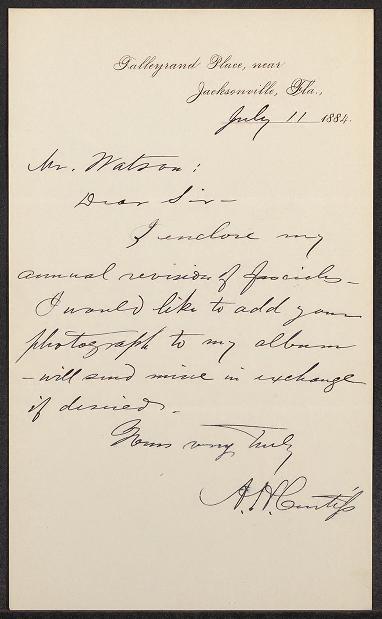 Talleyrand Place, near
Jacksonville, Fla.,
July 11 1884.
Mr. Watson:
Dear Sir—
I enclose my
annual revision of fascicles—
I would like to add your
photograph to my album
— will send mine in exchange
if desired.
Yours very truly
A. H. Curtiss